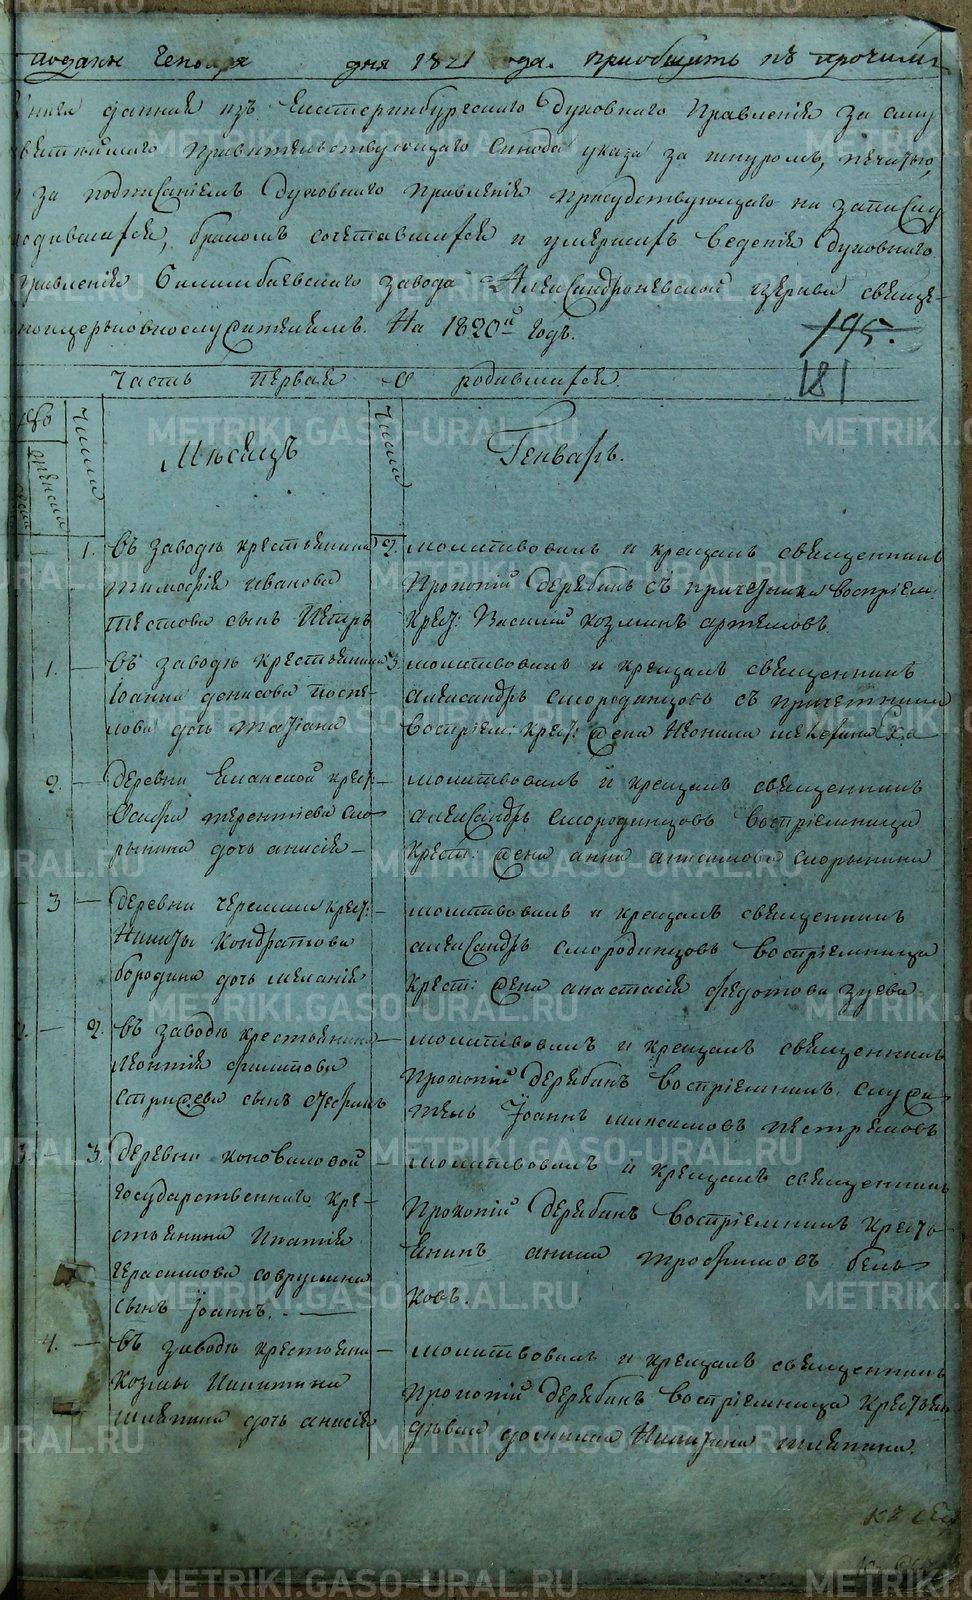 подана Генваря дня 1821 года. приобщить къ прочимъ
Книга данная изъ Екатеринбургскаго Духовнаго Правленія за силу
Правительствующаго Синода указа за шнуромъ, печатью,
за подписаніемъ Духовнаго Правленія присудствующаго на записку
родившихся, бракомъ сочетавшихся и умершихъ веденія Духовнаго
правленія Билимбаевскаго завода Александроневской церкви священно
церьковнослужителямъ. На 1820й годъ.
195.
181
Часть первая о родившихся.
Числа
Мѣсяцъ
Числа
Генварь.
женска
1. Въ заводѣ крестьянина
Тимофѣя Иванова
сынъ Петръ
2. молитвовалъ и крещалъ священникъ
Прокопій Дерябинъ съ причетника воспріем:
крест: Василій Козминъ Артемовъ.
1. Въ заводѣ крестьянина
Іоанна Денисова
дочь Татіана
3. молитвовалъ и крещалъ священникъ
Александръ Смородинцовъ съ причетника
воспріем: крест: жена Неонила
2. деревни Еланской крест:
Осифа Терентіева Ско-
рынина дочь Анисія
молитвовалъ и крещалъ священникъ
Александръ Смородинцовъ воспріемница
крест: жена Анна Анисимова Скорынина
3 деревни Черемши крест:
Никиты Кондратова
Бородина дочь Меланія
молитвовалъ и крещалъ священникъ
Александръ Смородинцовъ воспріемница
крест: жена Анастасія Федотова Зуева
2. Въ заводѣ крестьянина
Леонтія Филипова
Стрижева сынъ Стефанъ
молитвовалъ и крещалъ священникъ
Прокопій Дерябинъ воспріемникъ служи-
тель Іоаннъ Максимовъ Пестряковъ
3. деревни Коноваловой
государственнаго кре-
стьянина Игнатія
Герасимова
сынъ Іоаннъ.
молитвовалъ и крещалъ священникъ
Прокопій Дерябинъ воспріемникъ кресть-
янинъ Трофимовъ Бель-
ковъ.
4. Въ заводѣ крестьяни-
Козмы Никитина
Шляпина дочь Анисія
молитвовалъ и крещалъ священникъ
Прокопій Дерябинъ воспріемница крестьян
дѣвка Домника Никитина Шляпина.
METRIKI.GASO-URAL.RU